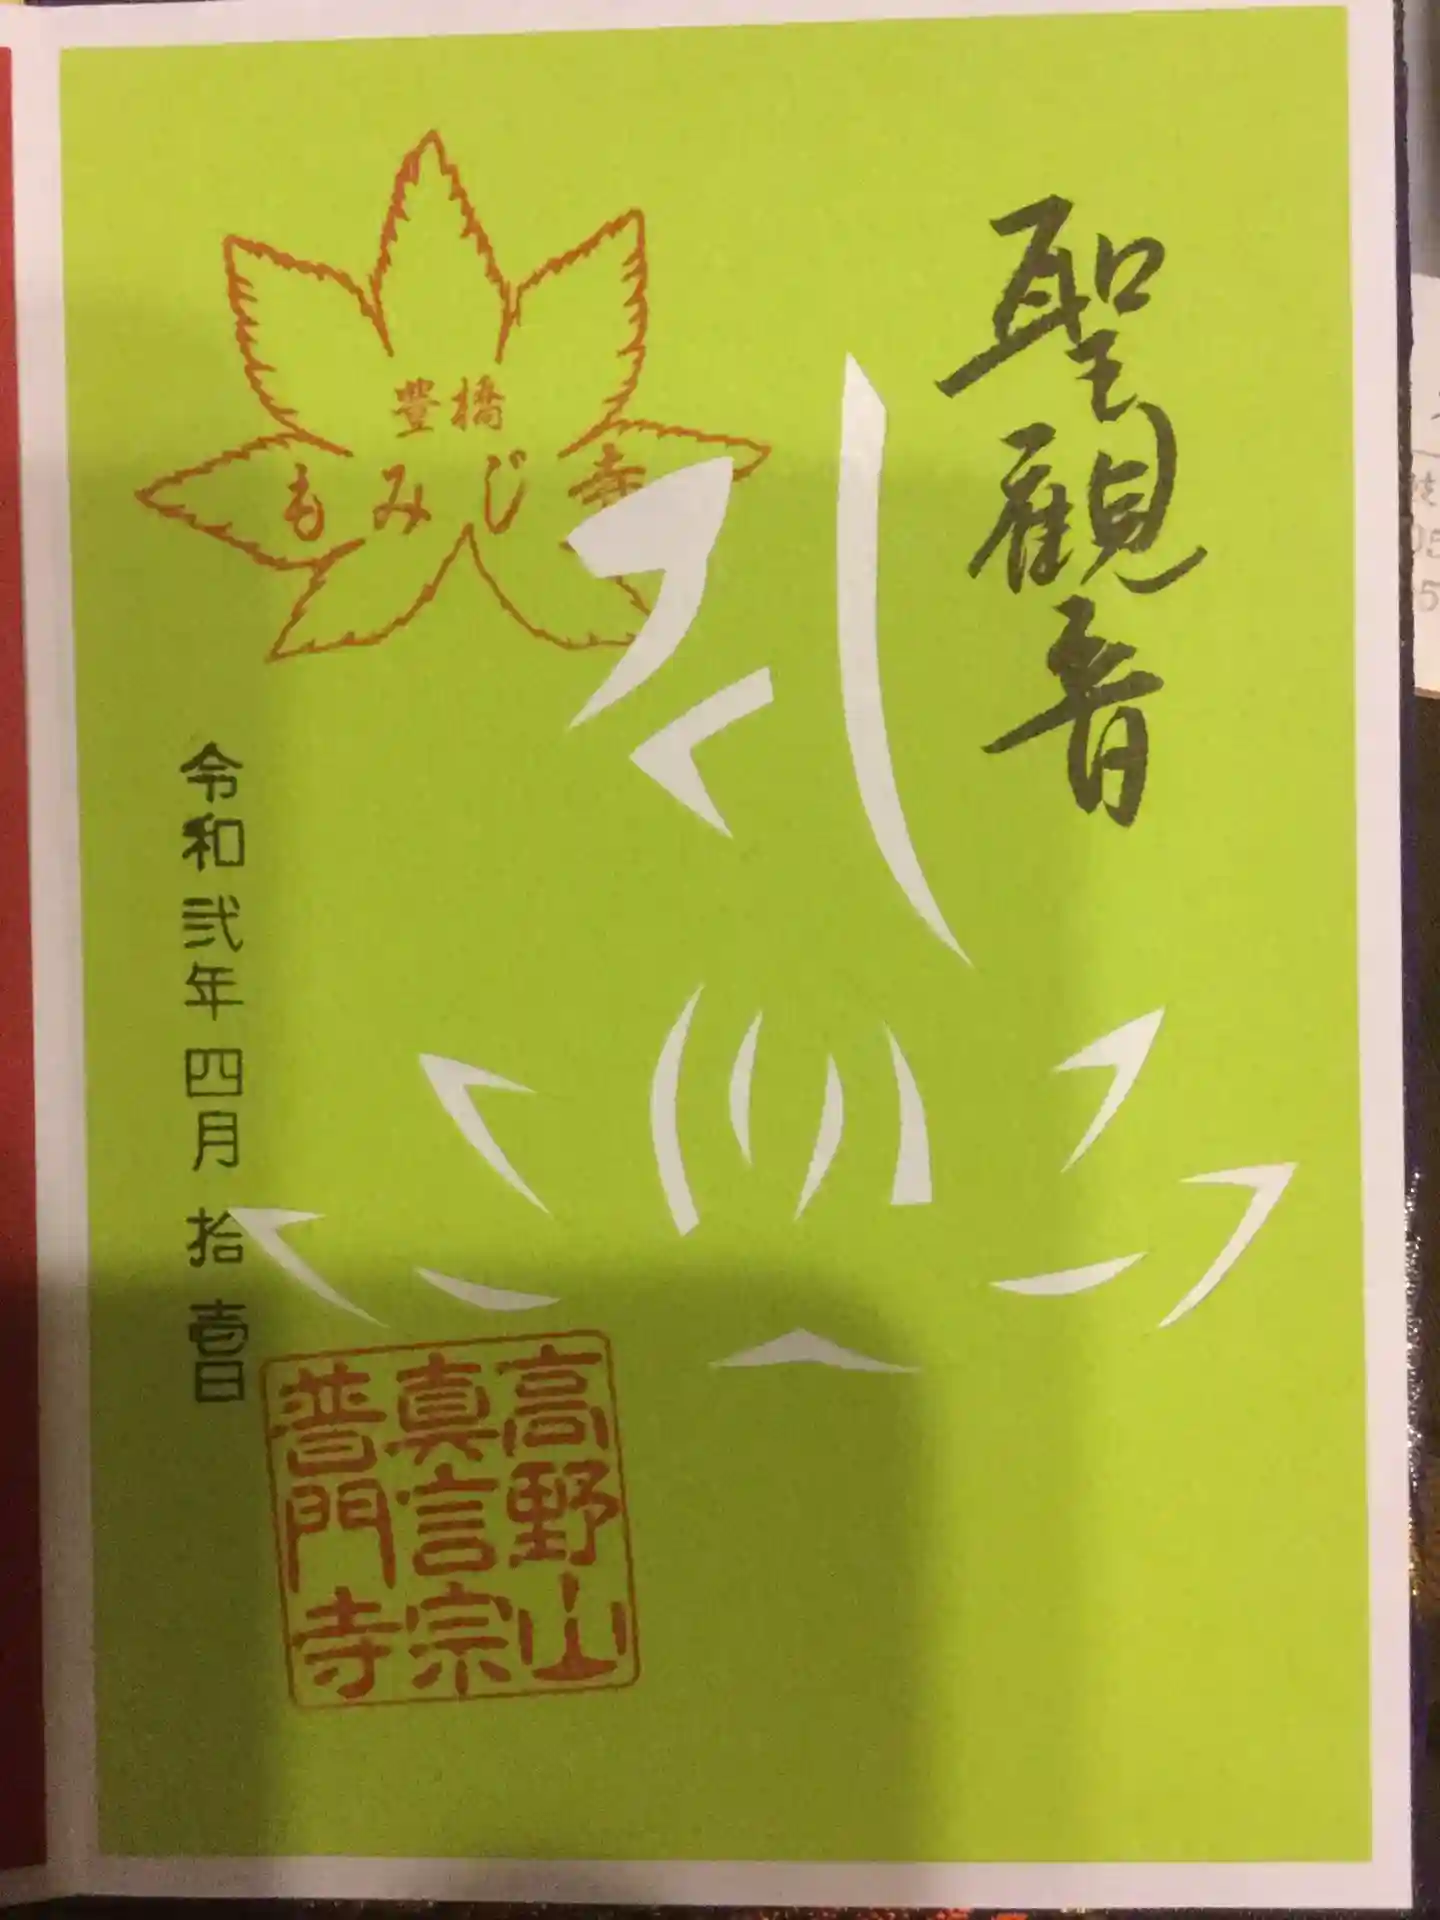 聖観音
豊橋
もみじ寺
令和弐年四月拾壱日
高野山
真言宗
普門寺